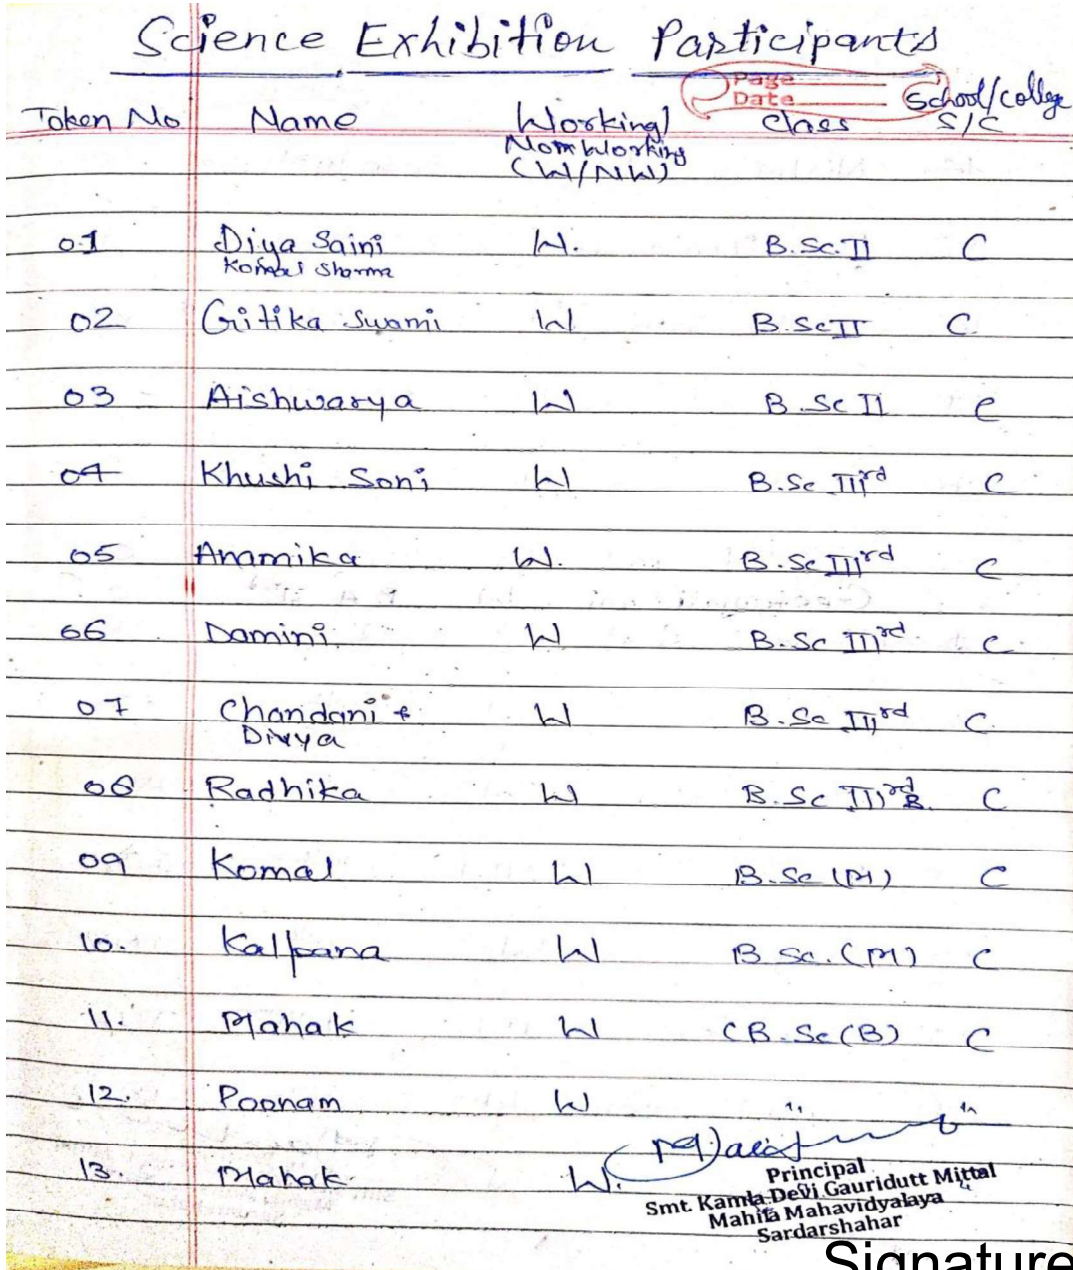 Science Exhibition Participants
Page
Date
School/College
Token No Name Working/ Class S/C
Non Working
(W/NW)
01 Diya Saini W. B.Sc.II C
Komal Sharma
02 Gitika Swami W B.Sc II C
03 Aishwarya W B.Sc II C
04 Khushi Soni W B.Sc IIIrd C
05 Anamika W. B.Sc IIIrd C
06 Damini W B.Sc IIIrd C
07 Chandani & W B.Sc IIIrd C
Divya
08 Radhika W B.Sc IIIrd B. C
09 Komal W B.Sc (M) C
10. Kalpana W B.Sc. (M) C
11. Mahak W (B.Sc (B) C
12. Poonam W " "
13. Mahak W. "
Principal
Smt. Kamla Devi Gauridutt Mittal
Mahila Mahavidyalaya
Sardarshahar
Signature